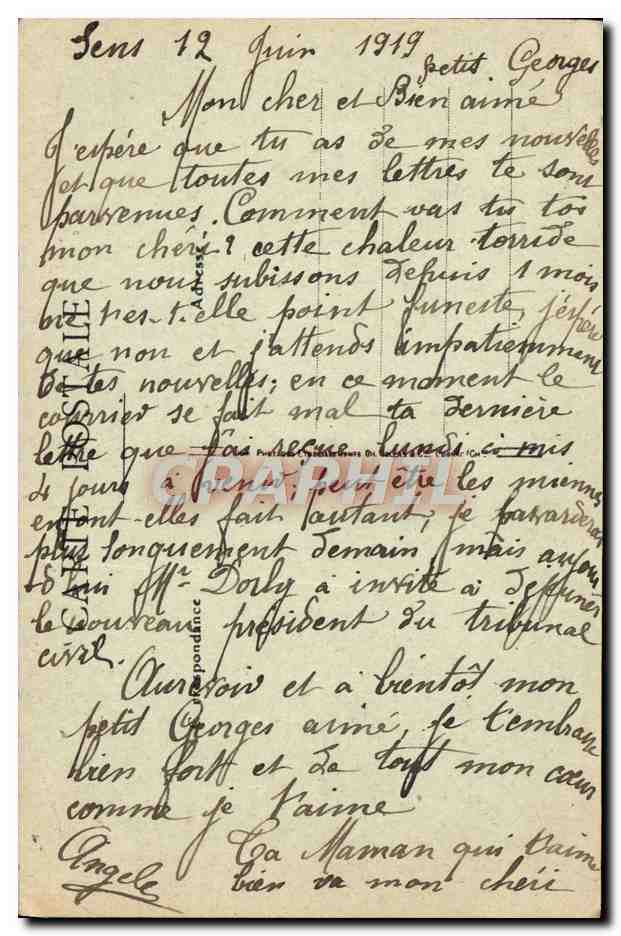 Sens 12 Juin 1919
petit Georges
Mon cher et Bien aimé
J'espére que tu as de mes nouvelles
et que toutes mes lettres te sont
parvenues. Comment vas tu toi
mon chéri? cette chaleur torride
que nous subissons depuis 1 mois
ne t'es-t-elle point funeste, j'espére
que non et j'attends impatiemment
de tes nouvelles; en ce moment le
courrier se fait mal ta dernière
lettre que j'ai reçue lundi a mis
4 jours à venir; peut être les miennes
en ont-elles fait autant; je bavarderai
plus longuement demain mais aujour
d'hui Mr Dorly a invité a dejeuner
le nouveau président du tribunal
civil.
Aurevoir et a bientôt mon
petit Georges aimé, je t'embrasse
bien fort et de tout mon cœur
comme je t'aime
Ta Maman qui t'aime
bien va mon chéri
Angele
CARTE POSTALE
Adresse
Correspondance
CPAPHIL